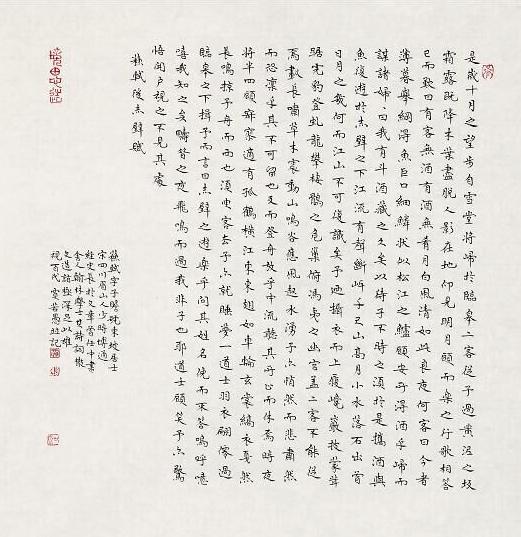 是歲十月之望步自雪堂將歸于臨皋二客從予過黃泥之坂
霜露既降木葉盡脫人影在地仰見明月顧而樂之行歌相答
已而歎曰有客無酒有酒無肴月白風清如此良夜何客曰今者
薄暮舉網得魚巨口細鱗狀似松江之鱸顧安所得酒乎歸而
謀諸婦々曰我有斗酒藏之久矣以待子不時之須於是攜酒與
魚復遊於赤壁之下江流有聲斷岸千尺山高月小水落石出曾
日月之幾何而江山不可復識矣予迺攝衣而上履巉巖披蒙茸
踞虎豹登虬龍攀棲鶻之危巢俯馮夷之幽宮蓋二客不能從
焉劃長嘯草木震動山鳴谷應風起水湧予亦悄然而悲肅然
而恐凜乎其不可留也反而登舟放乎中流聽其所止而休焉時夜
將半四顧寂寥適有孤鶴橫江東來翅如車輪玄裳縞衣戛然
長鳴掠予舟而西也須臾客去予亦就睡夢一道士羽衣翩僊過
臨皋之下揖予而言曰赤壁之遊樂乎問其姓名俛而不答嗚呼噫
嘻我知之矣疇昔之夜飛鳴而過我非子也耶道士顧笑予亦驚
悟開戶視之不見其處
蘇軾後赤壁賦
蘇軾字子瞻號東坡居士
宋四川眉山人少時博通
經史長於文章曾任中書
舍人翰林學士其詩詞散
文造詣極深足以雄
視百代 若愚並記